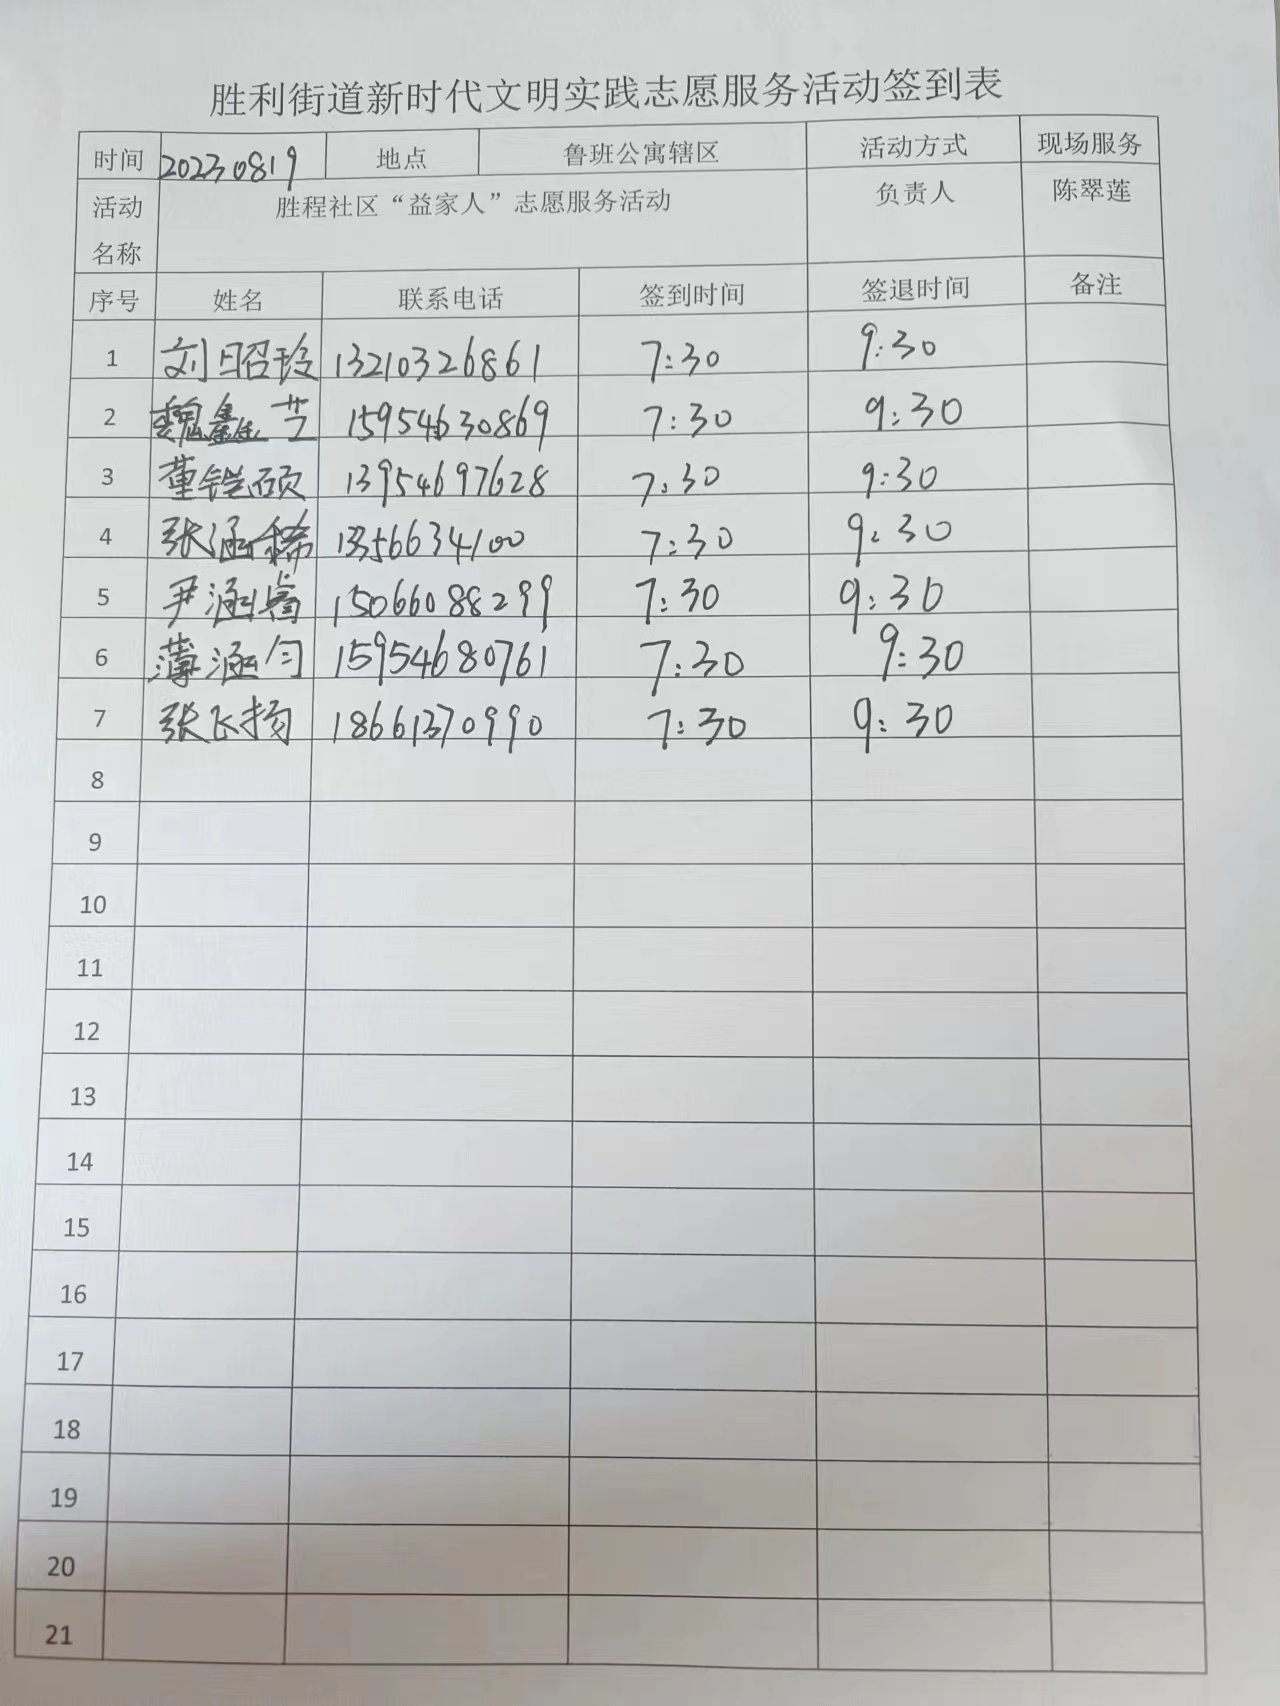 胜利街道新时代文明实践志愿服务活动签到表
时间 20230819 地点 鲁班公寓辖区 活动方式 现场服务
活动名称 胜程社区“益家人”志愿服务活动 负责人 陈翠莲
序号 姓名 联系电话 签到时间 签退时间 备注
1 刘昭玲 13210326861 7:30 9:30
2 魏鑫芝 15954630869 7:30 9:30
3 董铠硕 13954697628 7:30 9:30
4 张涵稀 7:30 9:30
5 尹涵睿 15066088299 7:30 9:30
6 薄涵匀 15954680761 7:30 9:30
7 张飞扬 18661370990 7:30 9:30
8
9
10
11
12
13
14
15
16
17
18
19
20
21